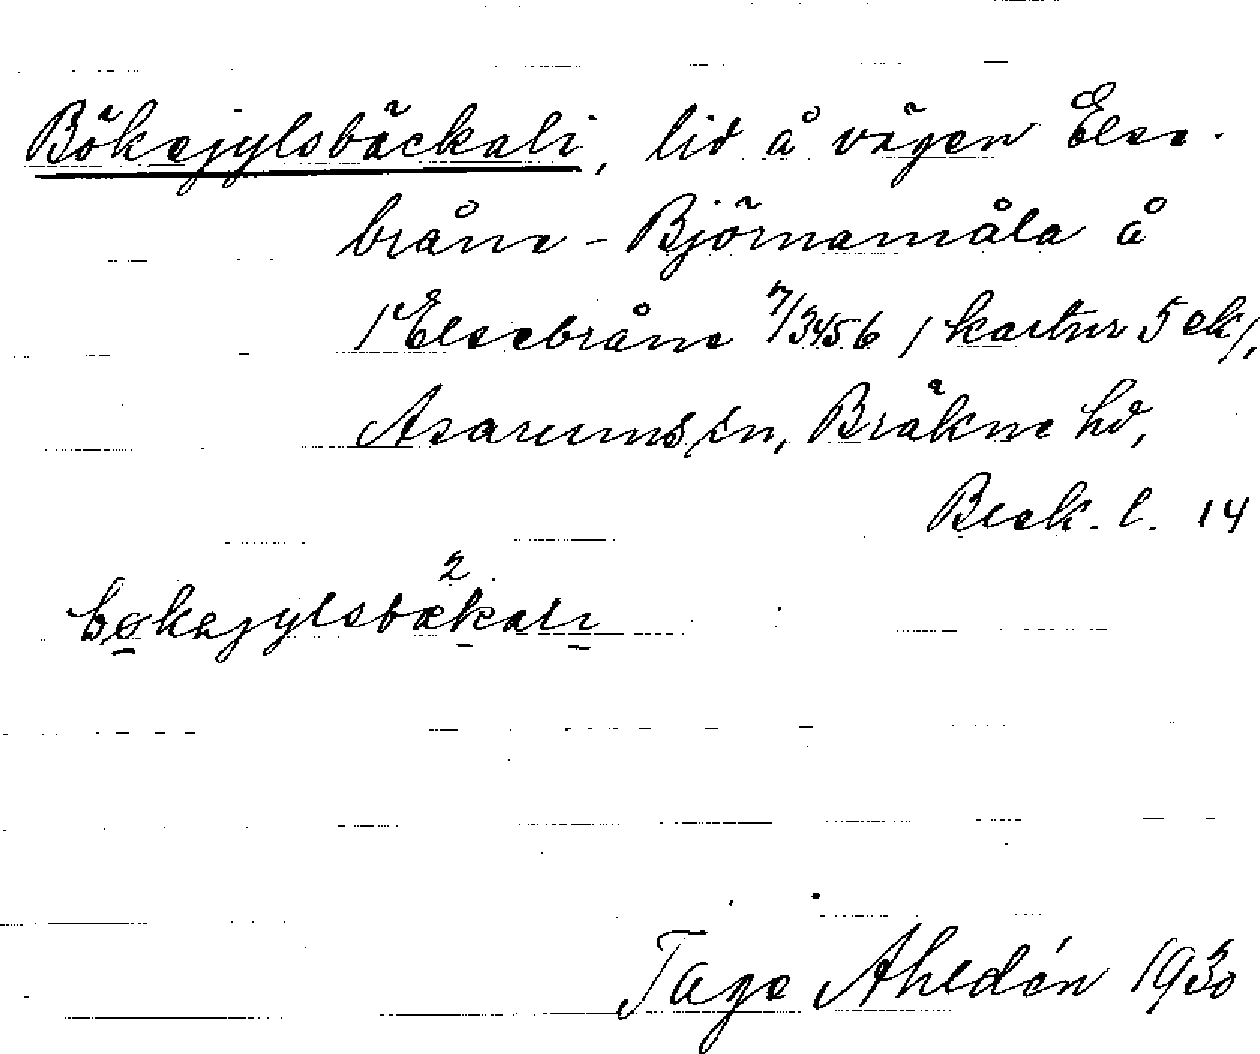 Bökejylsbäckali, lid å vägen Else-
bråne - Björnamåla å
1 Elsebråne 7/3456 / kartnr 5 ek/,
Asarums sn, Bräkne hd,
Bleck. l. 14
bøkejylsbæ²kali
Tage Ahldén 1930